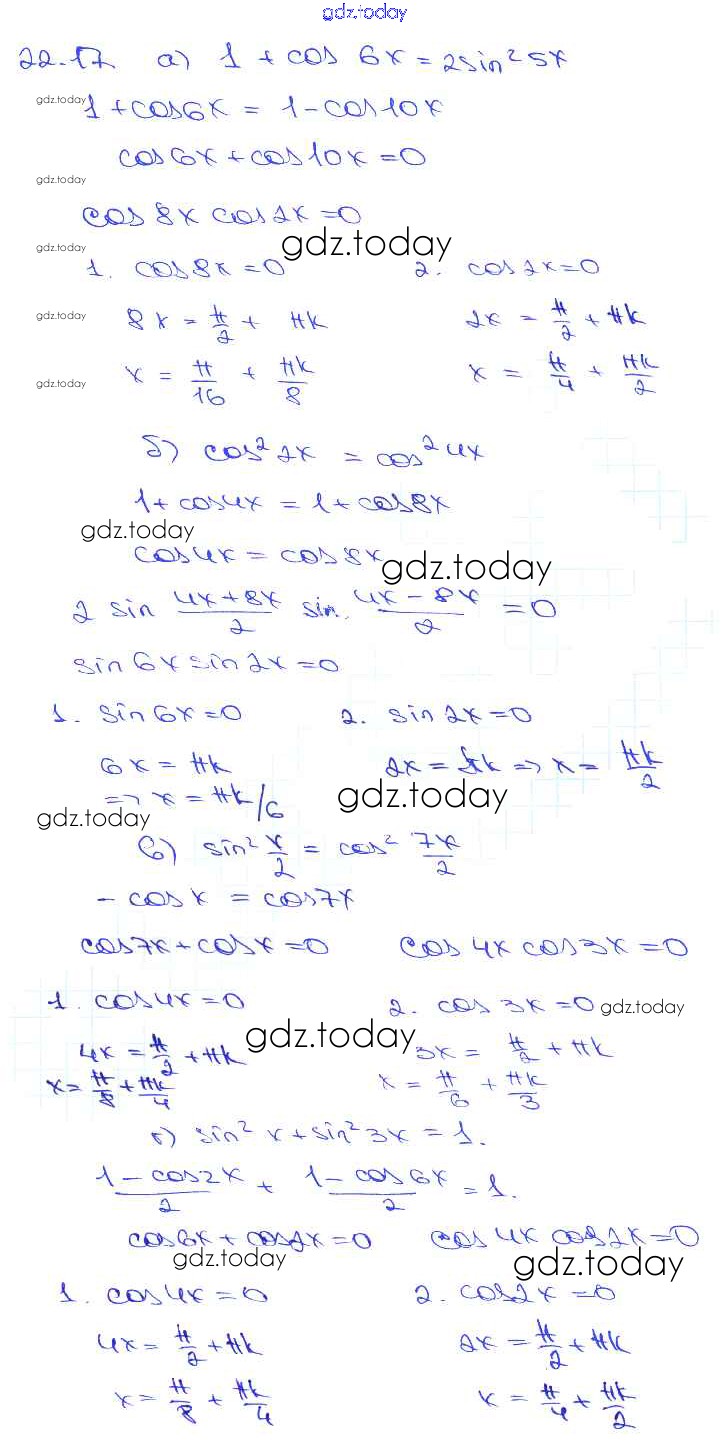 gdz.today
22.17 а) 1 + cos 6x = 2sin²5x
gdz.today 1 + cos6x = 1 - cos10x
cos6x + cos10x = 0
gdz.today
cos 8x cos 2x = 0
gdz.today gdz.today
1. cos8x = 0 2. cos2x = 0
gdz.today 8x = π/2 + πk 2x = π/2 + πk
gdz.today x = π/16 + πk/8 x = π/4 + πk/2
б) cos²2x = cos²4x
1 + cos4x = 1 + cos8x
gdz.today
cos4x = cos8x gdz.today
2 sin (4x+8x)/2 sin (4x-8x)/2 = 0
sin6x sin2x = 0
1. sin6x = 0 2. sin2x = 0
6x = πk 2x = πk => x = πk/2
=> x = πk/6 gdz.today
gdz.today
в) sin² x/2 = cos² 7x/2
- cos x = cos7x
cos7x + cosx = 0 cos 4x cos3x = 0
1. cos4x = 0 2. cos 3x = 0 gdz.today
4x = π/2 + πk gdz.today 3x = π/2 + πk
x = π/8 + πk/4 x = π/6 + πk/3
г) sin²x + sin²3x = 1.
(1 - cos2x)/2 + (1 - cos6x)/2 = 1.
cos6x + cos2x = 0 cos 4x cos2x = 0
gdz.today gdz.today
1. cos4x = 0 2. cos2x = 0
4x = π/2 + πk 2x = π/2 + πk
x = π/8 + πk/4 x = π/4 + πk/2